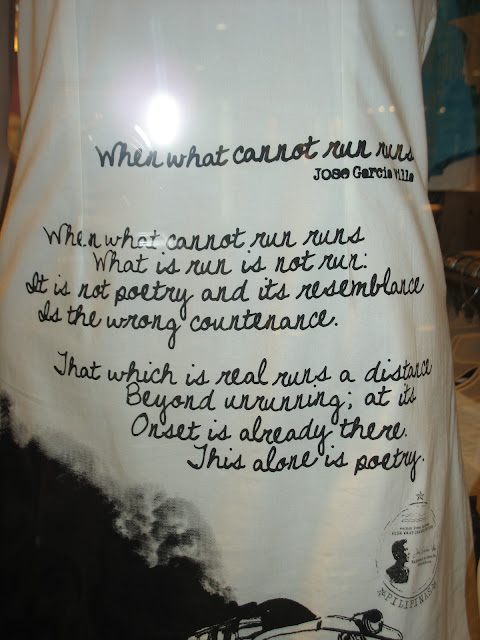 When what cannot run runs
Jose Garcia Villa
When what cannot run runs
What is run is not run:
It is not poetry and its resemblance
Is the wrong countenance.
That which is real runs a distance
Beyond unrunning; at its
Onset is already there.
This alone is poetry.
PILIPINAS